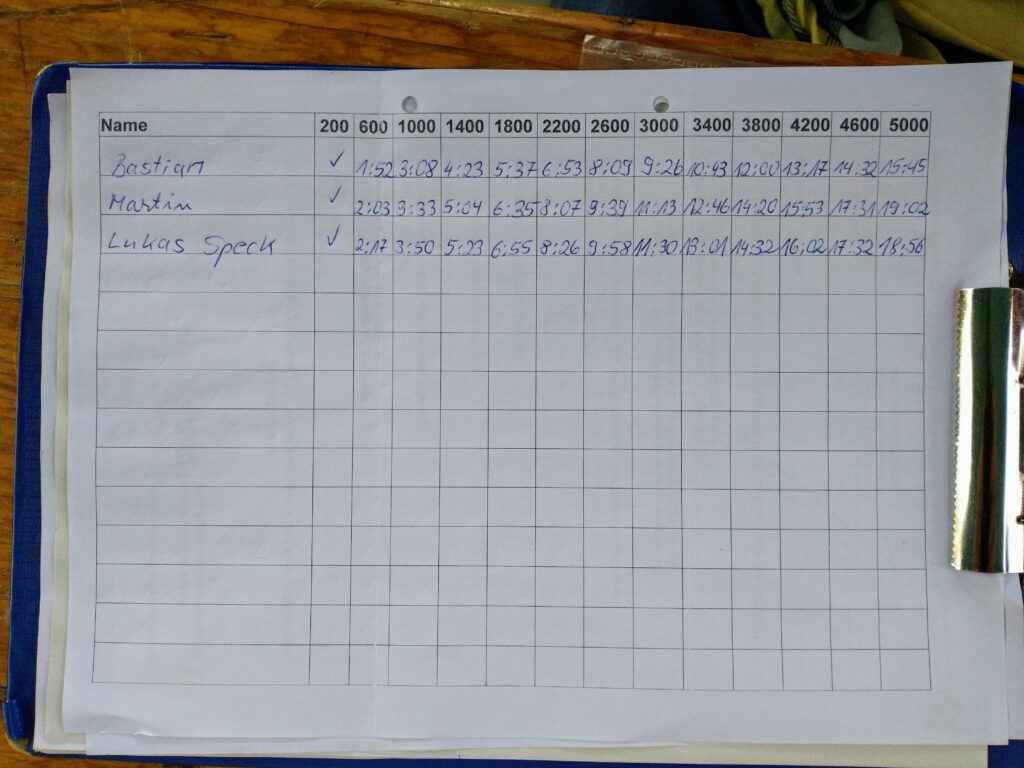 Name 200 600 1000 1400 1800 2200 2600 3000 3400 3800 4200 4600 5000
Bastian ✓ 1:52 3:08 4:23 5:37 6:53 8:09 9:26 10:43 12:00 13:17 14:32 15:45
Martin ✓ 2:03 3:33 5:04 6:35 8:07 9:39 11:13 12:46 14:20 15:53 17:31 19:02
Lukas Speck ✓ 2:17 3:50 5:23 6:55 8:26 9:58 11:30 13:01 14:32 16:02 17:32 18:56